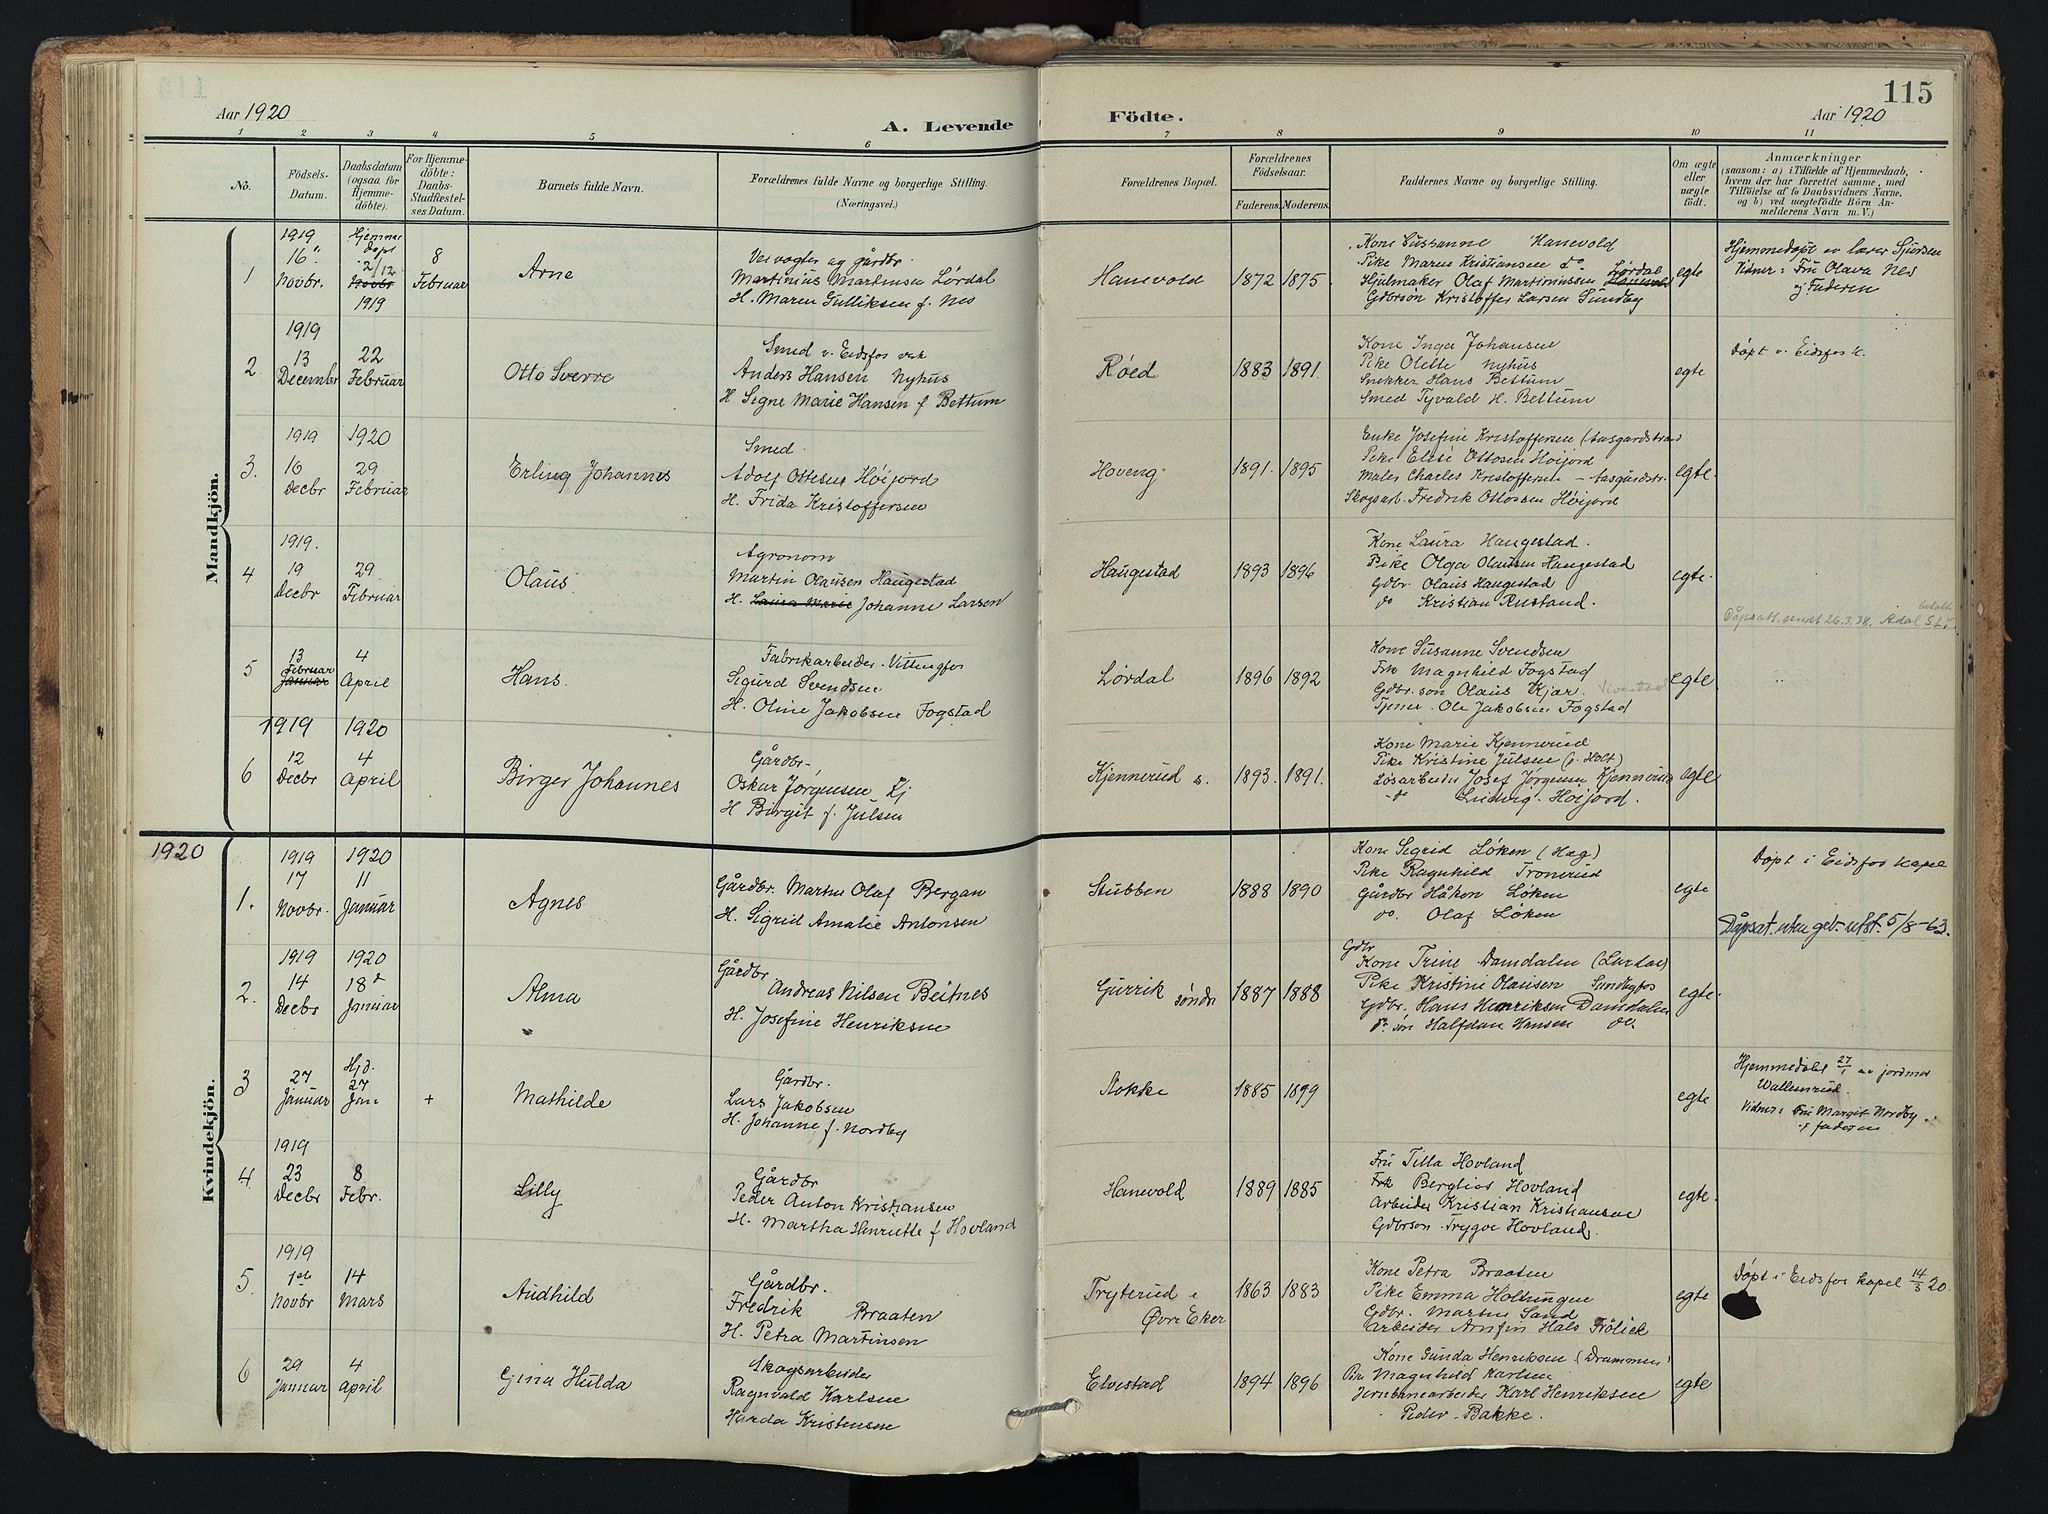 115
Aar 1920
A. Levende Födte.
Aar 1920
1 2 3 4 5 6 7 8 9 10 11
No.
Födsels-Datum.
Daabsdatum (ogsaa for Hjemmedöbte).
For Hjemmedöbte: Daabs-Stadfæstelses Datum.
Barnets fulde Navn.
Forældrenes fulde Navne og borgerlige Stilling.
(Næringsvei.)
Forældrenes Bopæl.
Forældrenes Födselsaar.
Faderens. Moderens.
Faddernes Navne og borgerlige Stilling.
Om ægte eller uægte födt.
Anmærkninger
(saasom: a) i Tilfælde af Hjemmedaab, hvem der har forrettet samme, med Tilföielse af to Daabsvidners Navne, og b) ved uægtefödte Börn Anmelderens Navn m. V.)
Mandkjön.
1
1919
16 Novbr.
Hjemmedøpt
2/12
Novbr
1919
8 Februar
Arne
Veivogter og gårdbr.
Martinius Martinsen Lørdal
H. Maren Gulliksen f. Nes
Hanevold
1872 1875
Kone Sussanne Hanevold
Pike Maren Kristiansen do
Hjulmaker Olaf Martiniussen Lørdal
Gdbrsøn Kristoffer Larsen Sundby
egte
Hjemmedøpt av lærer Sjursen
Vidner: Fru Olava Nes
og Faderen
2.
1919
13 December
22 Februar
Otto Sverre
Smed v. Eidsfos verk
Anders Hansen Nyhus
H Signe Marie Hansen f Bettum
Røed
1883 1891.
Kone Inga Johansen
Pike Olette Nyhus
Snekker Hans Bettum
Smed Tyvald H. Bettum
egte
Døpt v. Eidsfos k.
3.
1919
16 Decbr
1920
29 Februar
Erling Johannes
Smed.
Adolf Ottesen Høijord
H. Frida Kristoffersen
Hoveng
1891. 1895
Enke Josefine Kristoffersen (Aasgardstrand
Pike Elise Ottosen Høijord
Maler Charles Kristoffersen - Aasgardstr.
Skogsarb. Fredrik Ottossen Høijord
egte.
4
1919.
19 Decbr
29 Februar
Olaus
Agronom
Martin Olausen Haugestad
H. Laura Marie Johanne Larsen
Haugestad
1893 1896
Kone Laura Haugestad.
Pike Olga Olausen Haugestad
Gdbr. Olaus Haugestad
do Kristian Rustand.
egte.
Dåpsatt. sendt 26.3.38. Ådal betalt
5
13 Februar
Januar
4 April
Hans.
Fabrikarbeider Vittingfos
Sigurd Svendsen
H. Oline Jakobsen Fogstad
Lørdal
1896 1892
Kone Susanne Svendsen
Frk Magnhild Fogstad
Gdbr. søn Olaus Kjær.
Tjener. Ole Jakobsen Fogstad
egte.
6
1919
12 Decbr
1920
4 April
Birger Johannes
Gårdbr.
Oskar Jørgensen Kj
H Birgit f. Julsen
Kjennerud s.
1893. 1891.
Kone Marie Kjennerud
Pike Kristine Julsen (p. Holt)
Løsarbeider Josef Jørgensen Kjennerud
do Ludvig Høijord.
egte
Kvindekjön.
1920
1.
1919
17 Novbr.
1920
11 Januar
Agnes
Gårdbr. Martin Olaf Bergan
H. Sigrid Amalie Antonsen
Stubben
1888 1890
Kone Sigrid Løken (Hag)
Pike Ragnhild Tronerud
Gårdbr Håkon Løken
do. Olaf Løken
egte
Døpt i Eidsfos kapel
Dåpsat. uten geb. utst. 5/8-63.
2.
1919
14 Decbr
1920
18 Januar
Alma
Gårdbr
Andreas Nilsen Beitnes
H. Josefine Henriksen
Gurrik søndr
1887 1888
Gdbr
Kone Trine Damdalen (Lardal)
Pike Kristine Olausen Sundbyfos
Gdbr. Hans Henriksen Damdalen
do søn Halfdan Hansen do.
egte.
3
27 Januar
Hjd.
27 Jan
+
Mathilde
Gårdbr.
Lars Jakobsen
H. Johanne f. Nordby
Stokke
1885 1899
egte
Hjemmedøbt 27/1 av jordmor
Wallemrud.
Vidner: Fru Margit Nordby
og faderen
4
1919
23 Decbr
8 Febr.
Lilly
Gårdbr
Peder Anton Kristiansen
H. Martha Henriette f Hovland
Hanevold
1889 1885
Fru Tilla Hovland
Frk Bergliot Hovland
Arbeider Kristian Kristiansen
Gdbrsøn. Trygve Hovland
egte.
5.
1919
1ste Novbr
14 Mars
Audhild
Gårdbr.
Fredrik Braaten
H. Petra Martinsen
Tryterud i Øvre Eker
1863 1883
Kone Petra Braaten
Pike Emma Holtungen
Gdbr. Martin Sand
Arbeider Arnfin Hals
egte
Døpt i Eidsfos kapel 14/3 20.
6
29 Januar
4 April
Gina Hulda
Skogsarbeider
Ragnvald Karlsen
Harda Kristensen
Elvestad
1894 1896
Kone Gunda Henriksen (Drammen)
Pike Magnhild Karlsen
Jernbanearbeider Karl Henriksen
Peder Bakke.
egte